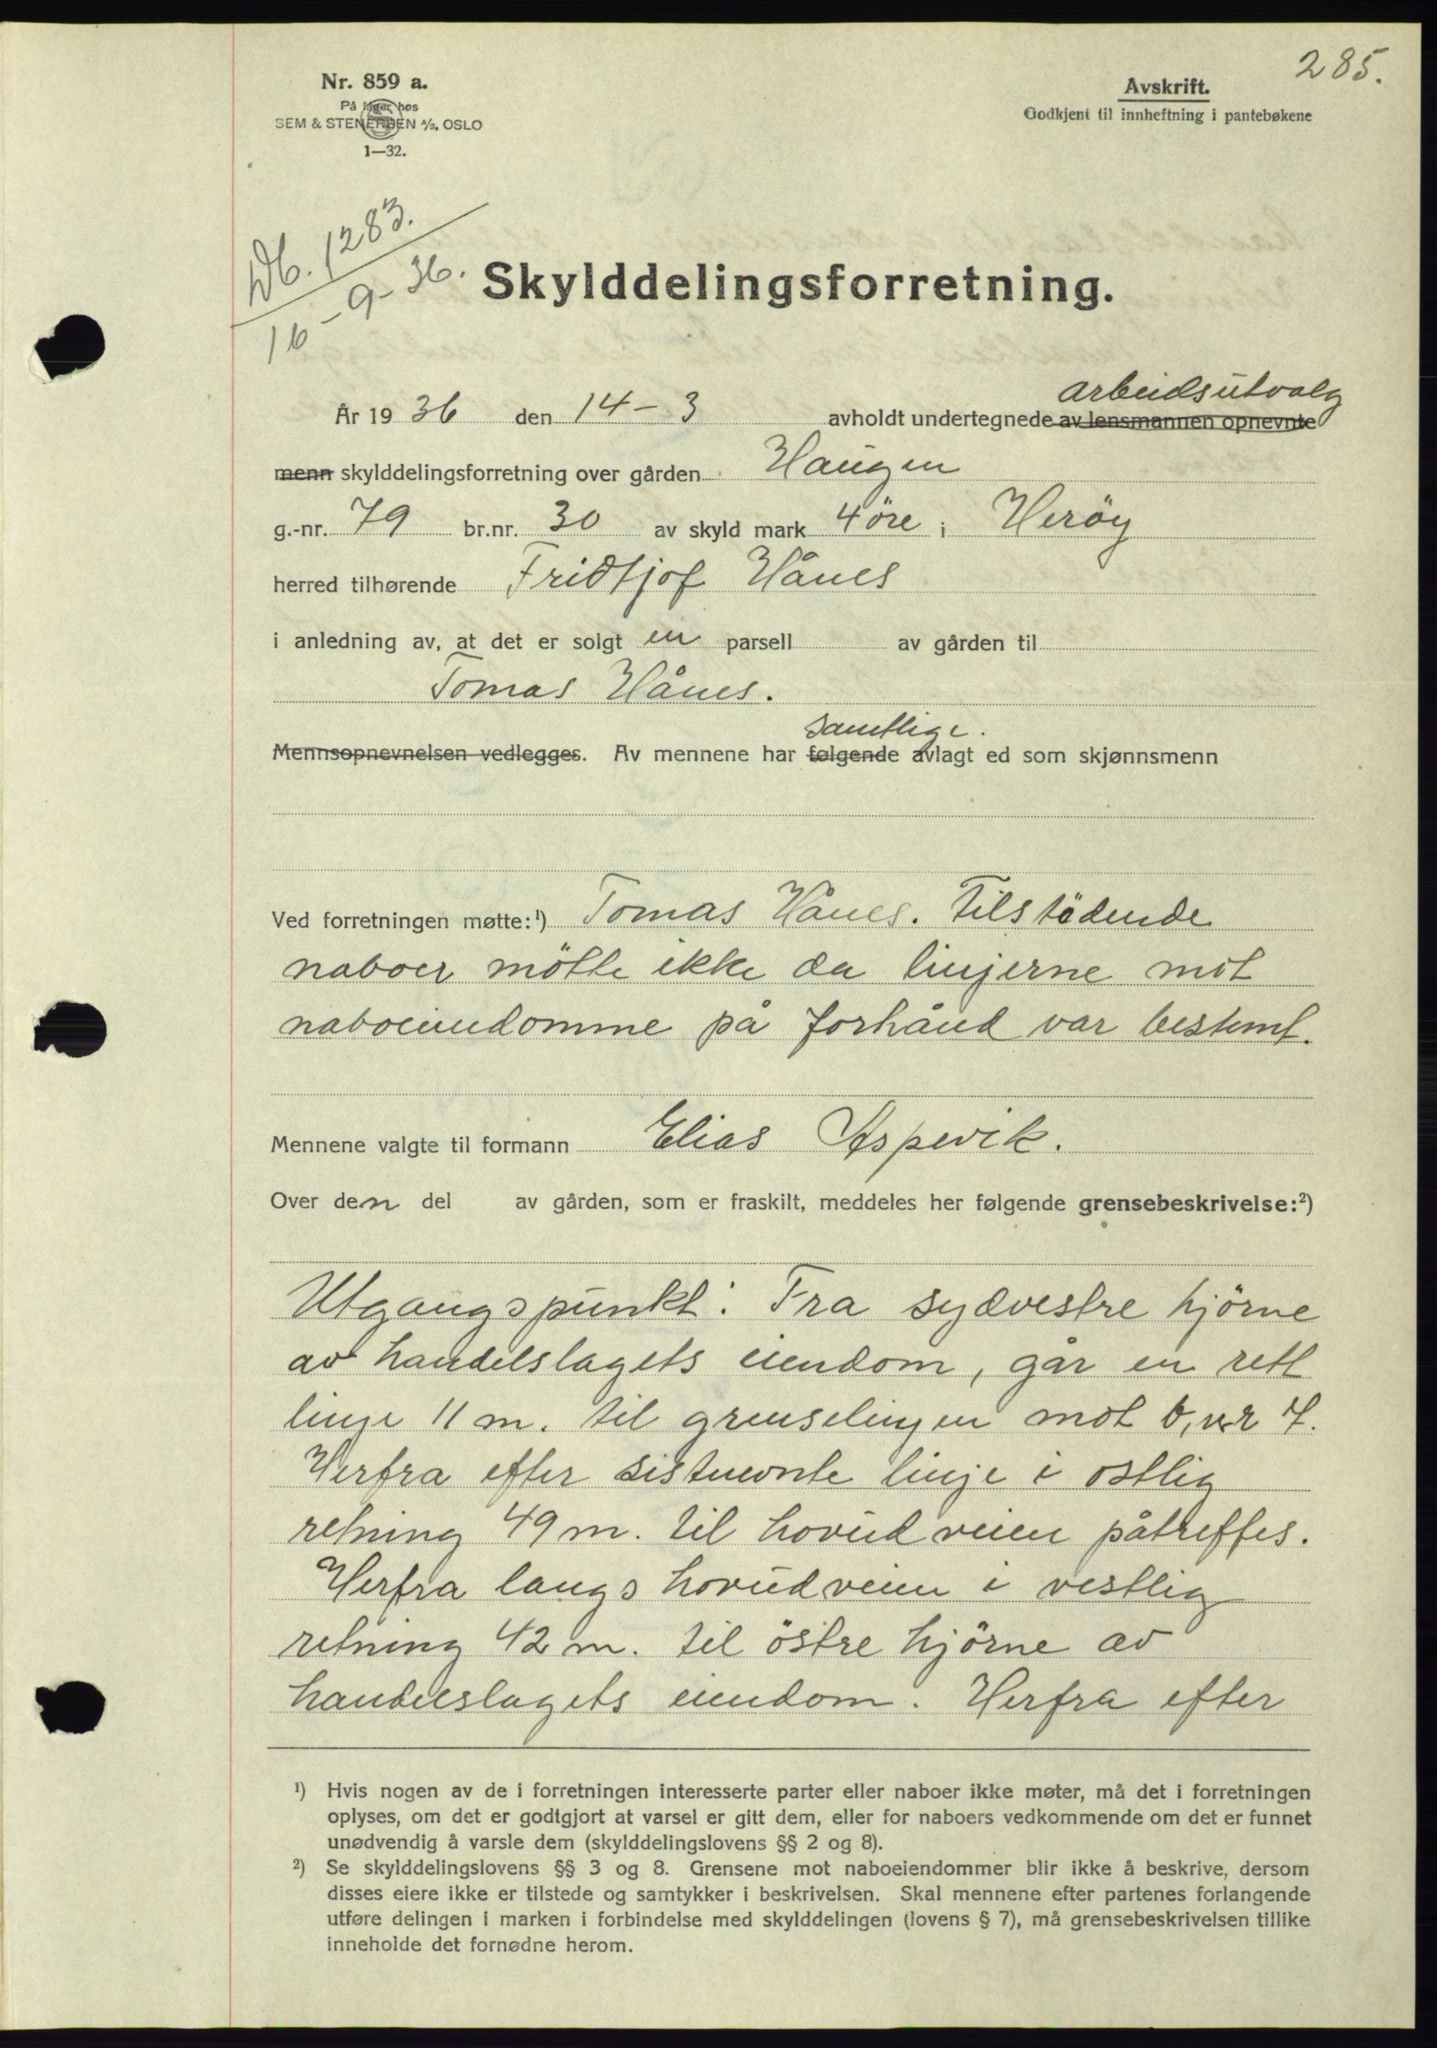 285.
Nr. 859 a.
På lager hos
SEM & STENERSEN A/S, OSLO
1—32.
Avskrift.
Godkjent til innheftning i pantebøkene
Db. 1283.
16-9-36.
Skylddelingsforretning.
arbeidsutvalg
År 1936 den 14-3 avholdt undertegnede av lensmannen opnevnte
menn skylddelingsforretning over gården Haugen
g.-nr. 79 br.nr. 30 av skyld mark 4 øre i Heröy
herred tilhørende Fridtjof Hånes
i anledning av, at det er solgt en parsell av gården til
Tomas Hånes.
samtlige.
Mennsopnevnelsen vedlegges. Av mennene har følgende avlagt ed som skjønnsmenn
Ved forretningen møtte:¹) Tomas Hånes. Tilstödende
naboer mötte ikke da linjerne mot
naboeiendomme på forhånd var bestemt.
Mennene valgte til formann Elias Aspevik.
Over den del av gården, som er fraskilt, meddeles her følgende grensebeskrivelse:²)
Utgangspunkt: Fra sydvestre hjörne
av handelslagets eiendom, går en rett
linje 11 m. til grenselinjen mot b,nr 7.
Herfra efter sistnevnte linje i östlig
retning 49 m. til hovudveien påtreffes.
Herfra langs hovudveien i vestlig
retning 42 m. til östre hjörne av
handelslagets eiendom. Herfra efter
¹) Hvis nogen av de i forretningen interesserte parter eller naboer ikke møter, må det i forretningen
oplyses, om det er godtgjort at varsel er gitt dem, eller for naboers vedkommende om det er funnet
unødvendig å varsle dem (skylddelingslovens §§ 2 og 8).
²) Se skylddelingslovens §§ 3 og 8. Grensene mot naboeiendommer blir ikke å beskrive, dersom
disses eiere ikke er tilstede og samtykker i beskrivelsen. Skal mennene efter partenes forlangende
utføre delingen i marken i forbindelse med skylddelingen (lovens § 7), må grensebeskrivelsen tillike
inneholde det fornødne herom.